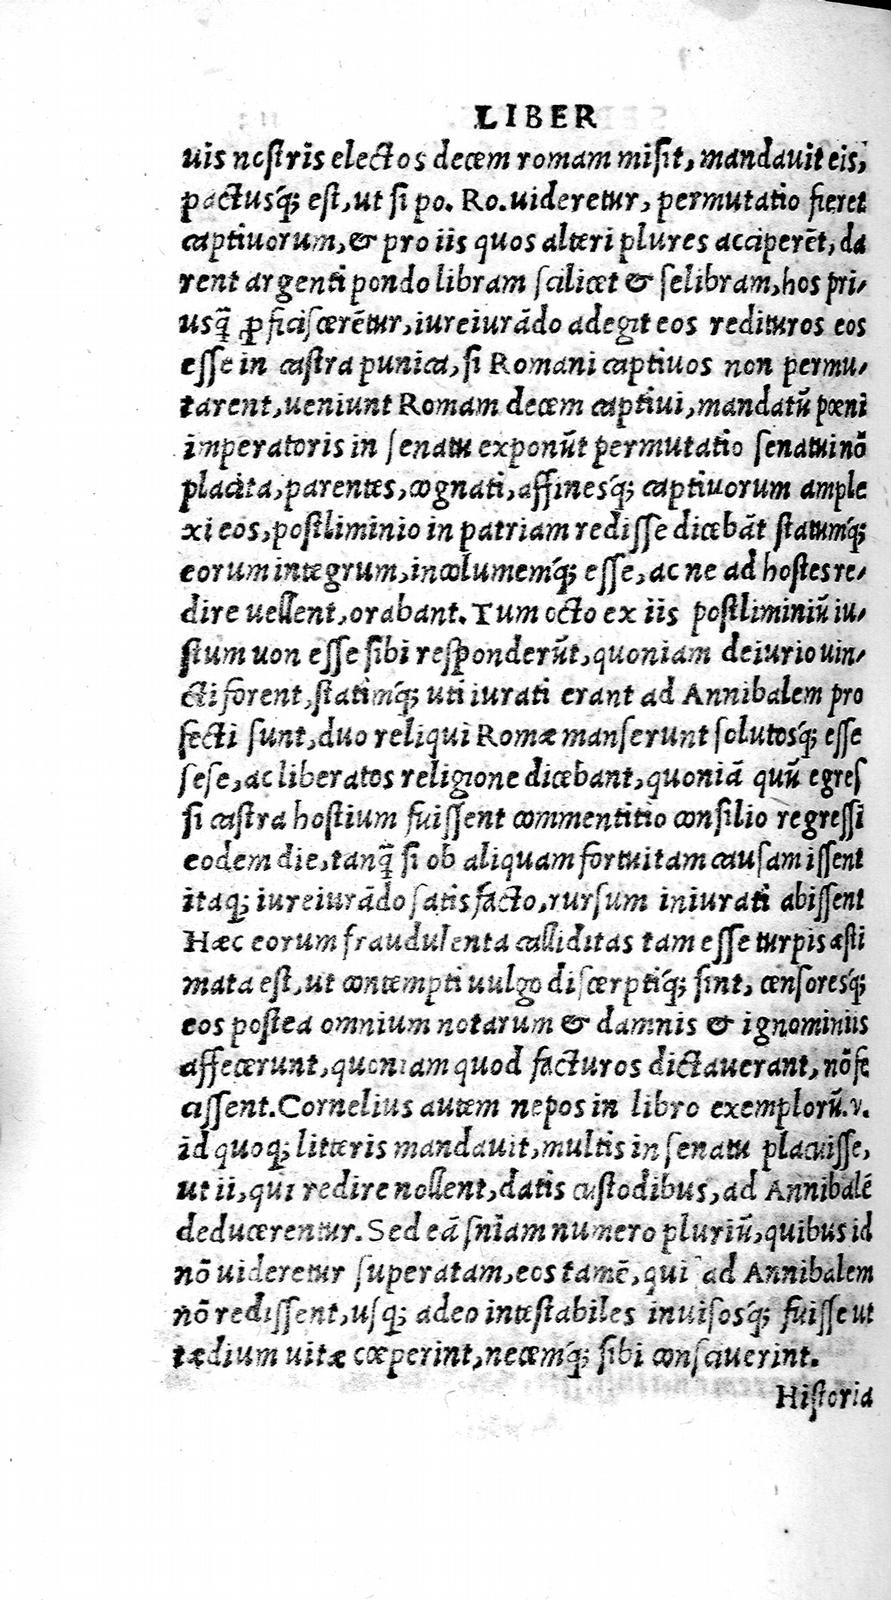 LIBER
uis nostris electos decem romam misit, mandauit eis,
pactusq́; est, ut si po. Ro. uideretur, permutatio fieret
captiuorum, & pro iis quos alteri plures acciperēt, da
rent argenti pondo libram scilicet & selibram, hos pri-
usq̄ ꝓficiscerētur, iureiurādo adegit eos redituros eos
esse in castra punica, si Romani captiuos non permu-
tarent, ueniunt Romam decem captiui, mandatū pœni
imperatoris in senatu exponūt permutatio senatui nō
placita, parentes, cognati, affinesq́; captiuorum ample
xi eos, postliminio in patriam redisse dicebāt statumq́;
eorum integrum, incolumemq́; esse, ac ne ad hostes re-
dire uellent, orabant. Tum octo ex iis postliminiū iu-
stum uon esse sibi responderūt, quoniam deiurio uin-
cti forent, statimq́; uti iurati erant ad Annibalem pro
fecti sunt, duo reliqui Romæ manserunt solutosq́; esse
sese, ac liberatos religione dicebant, quoniā quū egres
si castra hostium fuissent commentitio consilio regressi
eodem die, tanq̄ si ob aliquam fortuitam causam issent
itaq; iureiurādo satisfacto, rursum iniurati abissent
Hæc eorum fraudulenta calliditas tam esse turpis æsti
mata est, ut contempti uulgo discerptiq́; sint, censoresq́;
eos postea omnium notarum & damnis & ignominiis
affecerunt, quoniam quod facturos dictauerant, nō fe
cissent. Cornelius autem nepos in libro exemplorū. v.
id quoq; litteris mandauit, multis in senatu placuisse,
ut ii, qui redire nollent, datis custodibus, ad Annibalē
deducerentur. Sed eā sn̄iam numero pluriū, quibus id
nō uideretur superatam, eos tamē, qui ad Annibalem
nō redissent, usq; adeo intestabiles inuisosq́; fuisse ut
tædium uitæ cœperint, necemq́; sibi consciuerint.
Historia